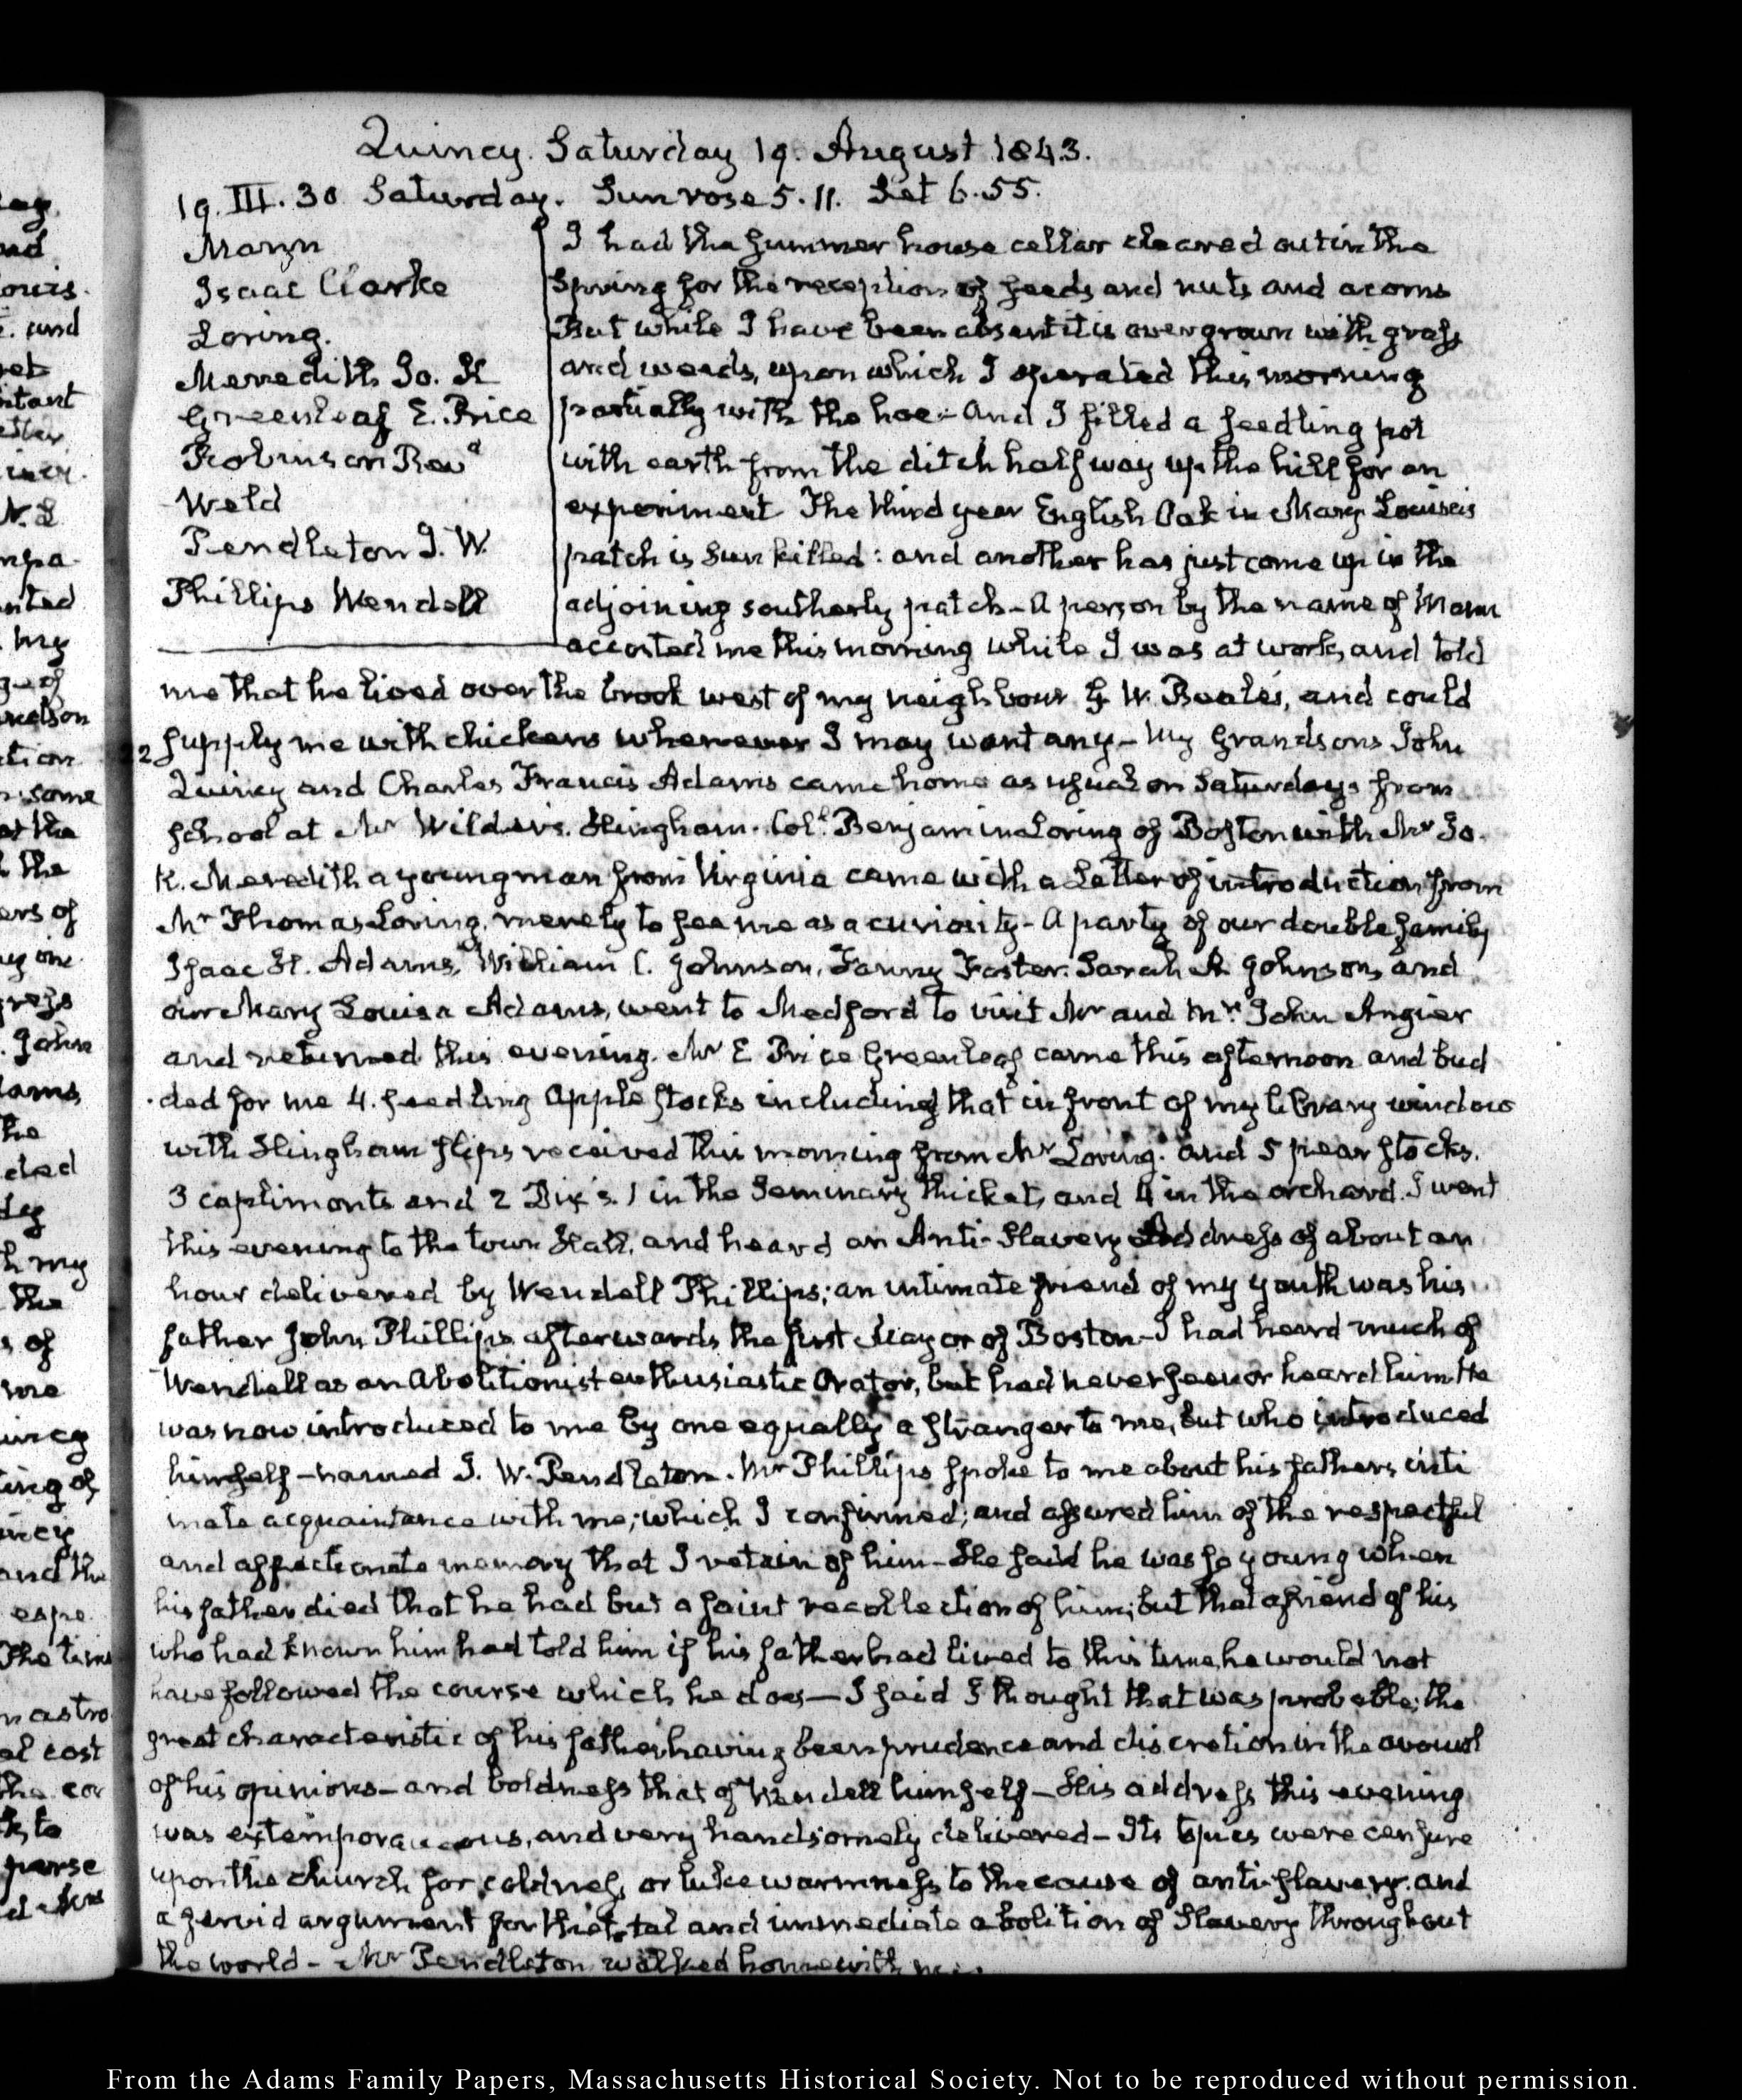 Quincy. Saturday 19. August 1843.
19. III. 30 Saturday. Sun rose 5.11. Set 6.55.
Mann
Isaac Clarke
Loring.
Meredith Jo. K
Greenleaf E. Price
Robinson Revd
Weld
Pendleton J. W.
Phillips Wendell
I had the summer house cellar cleared out in the
Spring for the reception of seeds and nuts and acorns
But while I have been absent it is overgrown with grass
and weeds, upon which I operated this morning
partially with the hoe - And I filled a seedling pot
with earth from the ditch half way up the hill for an
experiment. The third year English Oak in Mary Louisa's
patch is Sun killed: and another has just come up in the
adjoining southerly patch - A person by the name of Mann
accosted me this morning while I was at work, and told
me that he lived over the brook west of my neighbour G W. Beale's, and could
supply me with chickens whenever I may want any - My Grandsons John
Quincy and Charles Francis Adams came home as usual on Saturdays from
school at Mr Wilder's. Hingham. Coll. Benjamin Loring of Boston with Mr Jo.
K. Meredith a young man from Virginia came with a Letter of introduction from
Mr Thomas Loring, merely to see me as a curiosity - A party of our double family
Isaac H. Adams, William C. Johnson, Fanny Foster. Sarah A. Johnson, and
our Mary Louisa Adams, went to Medford to visit Mr and Mrs John Angier
and returned this evening. Mr E Price Greenleaf came this afternoon and bud
ded for me 4. seedling Apple stocks including that in front of my library window
with Hingham slips received this morning from Mr Loring. and 5 pear stocks.
3 capiimonts and 2 Dix's. 1 in the Seminary thicket, and 4 in the orchard. I went
this evening to the town Hall, and heard an Anti-Slavery Address of about an
hour delivered by Wendell Phillips; an intimate friend of my youth was his
father John Phillips afterwards the first Mayor of Boston - I had heard much of
Wendell as an Abolitionist enthusiastic Orator, but had never seen or heard him. He
was now introduced to me by one equally a stranger to me, but who introduced
himself - named J. W. Pendleton. Mr Phillips spoke to me about his fathers inti
mate acquaintance with me; which I confirmed; and assured him of the respectful
and affectionate memory that I retain of him - He said he was so young when
his father died that he had but a faint recollection of him; but that a friend of his
who had known him had told him if his father had lived to this time he would not
have followed the course which he does — I said I thought that was probable; the
great characteristic of his father having been prudence and discretion in the avowal
of his opinions - and boldness that of Wendell himself - His address this evening
was extemporaneous, and very handsomely delivered - Its topics were censure
upon the church for coldness, or lukewarmness to the cause of anti-slavery. and
a fervid argument for the total and immediate abolition of Slavery throughout
the world - Mr Pendleton walked home with me.
From the Adams Family Papers, Massachusetts Historical Society. Not to be reproduced without permission.